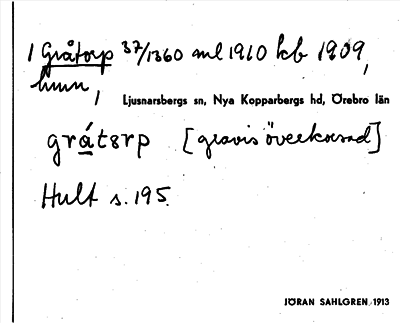 1 Gråtorp 37/1360 ml 1910 kb 1909,
hmn,
Ljusnarsbergs sn, Nya Kopparbergs hd, Örebro län
grá̱tɜrp [gravis överkorsad]
Hult s. 195.
JÖRAN SAHLGREN 1913